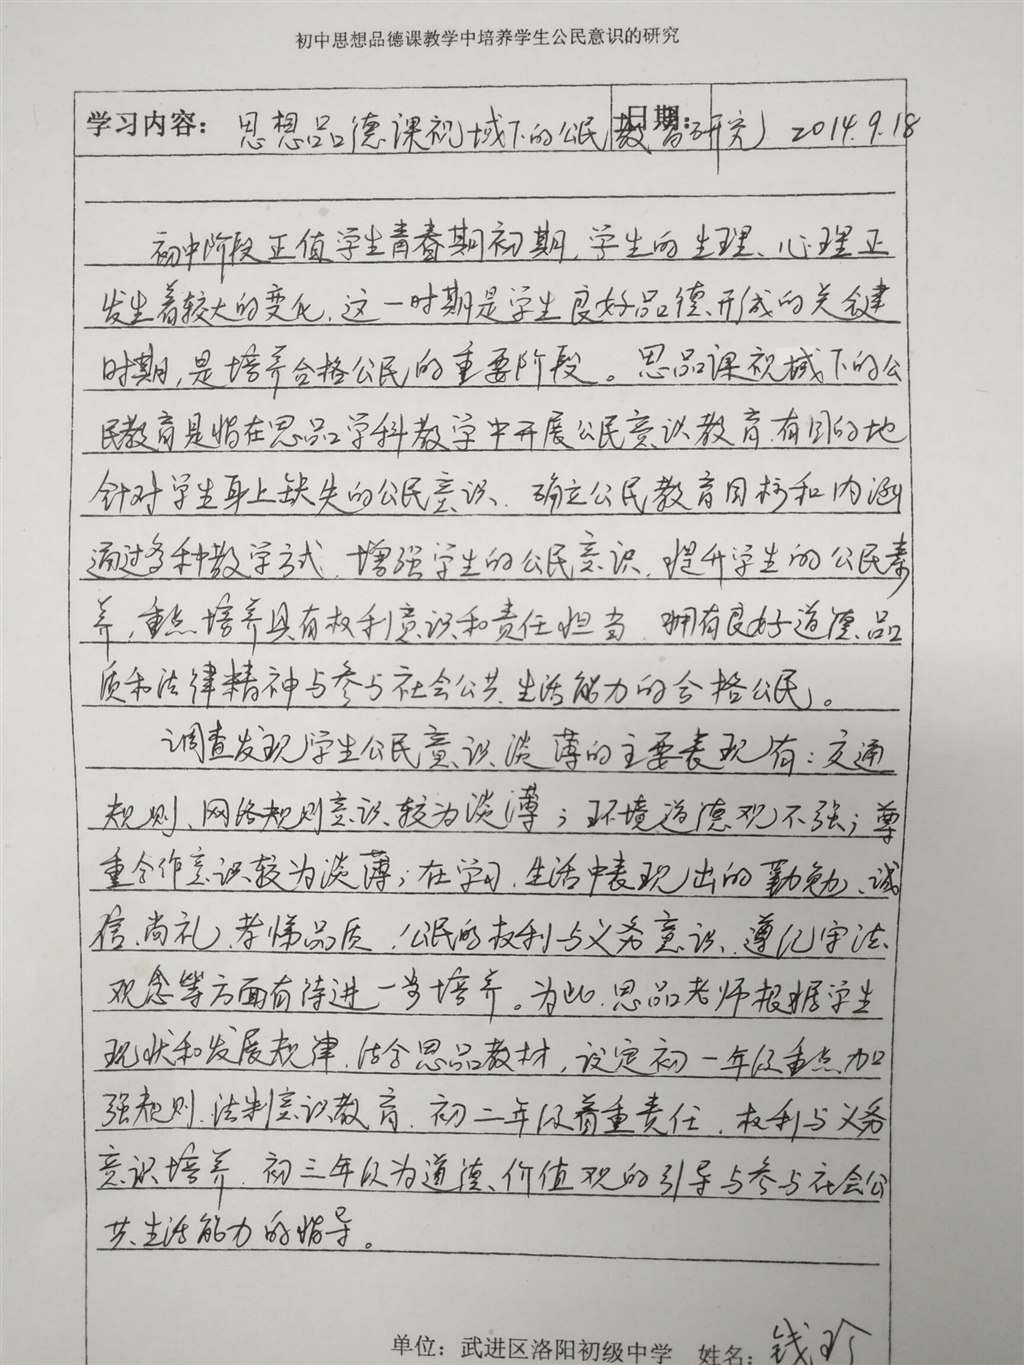 初中思想品德课教学中培养学生公民意识的研究
学习内容： 思想品德课视域下的公民教育研究 日期： 2014.9.18
初中阶段正值学生青春期初期，学生的生理、心理正
发生着较大的变化，这一时期是学生良好品德形成的关键
时期，是培养合格公民的重要阶段。思品课视域下的公
民教育是指在思品学科教学中开展公民意识教育，有目的地
针对学生身上缺失的公民意识、确立公民教育目标和内涵
通过多种教学方式，增强学生的公民意识，提升学生的公民素
养，重点培养具有权利意识和责任担当，拥有良好道德品
质和法律精神与参与社会公共生活能力的合格公民。
调查发现学生公民意识淡薄的主要表现有：交通
规则、网络规则意识较为淡薄；环境道德观不强；尊
重合作意识较为淡薄；在学习、生活中表现出的勤勉、诚
信、尚礼、孝悌品质，公民的权利与义务意识、遵纪守法
观念等方面有待进一步培养。为此，思品老师根据学生
现状和发展规律，结合思品教材，设定初一年级重点加
强规则、法制意识教育，初二年级着重责任、权利与义务
意识培养，初三年级为道德、价值观的引导与参与社会公
共生活能力的指导。
单位：武进区洛阳初级中学 姓名：钱珍